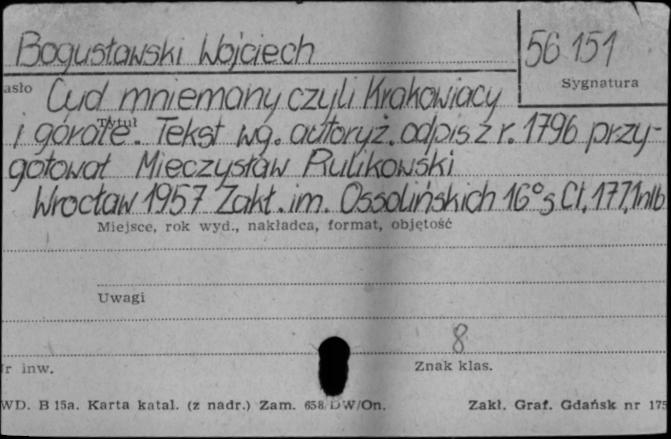 Bogusławski Wojciech
56 151
asło
Sygnatura
Cud mniemany czyli Krakowiacy
Tytuł
i górale. Tekst wg. autoryz. odpis z r. 1796 przy-
gotował Mieczysław Rulikowski
Wrocław 1957 Zakł. im. Ossolińskich 16° s. CI, 177, 1nlb
Miejsce, rok wyd., nakładca, format, objętość
Uwagi
8
r inw.
Znak klas.
WD. B 15a. Karta katal. (z nadr.) Zam. 658/DW/On.
Zakł. Graf. Gdańsk nr 175